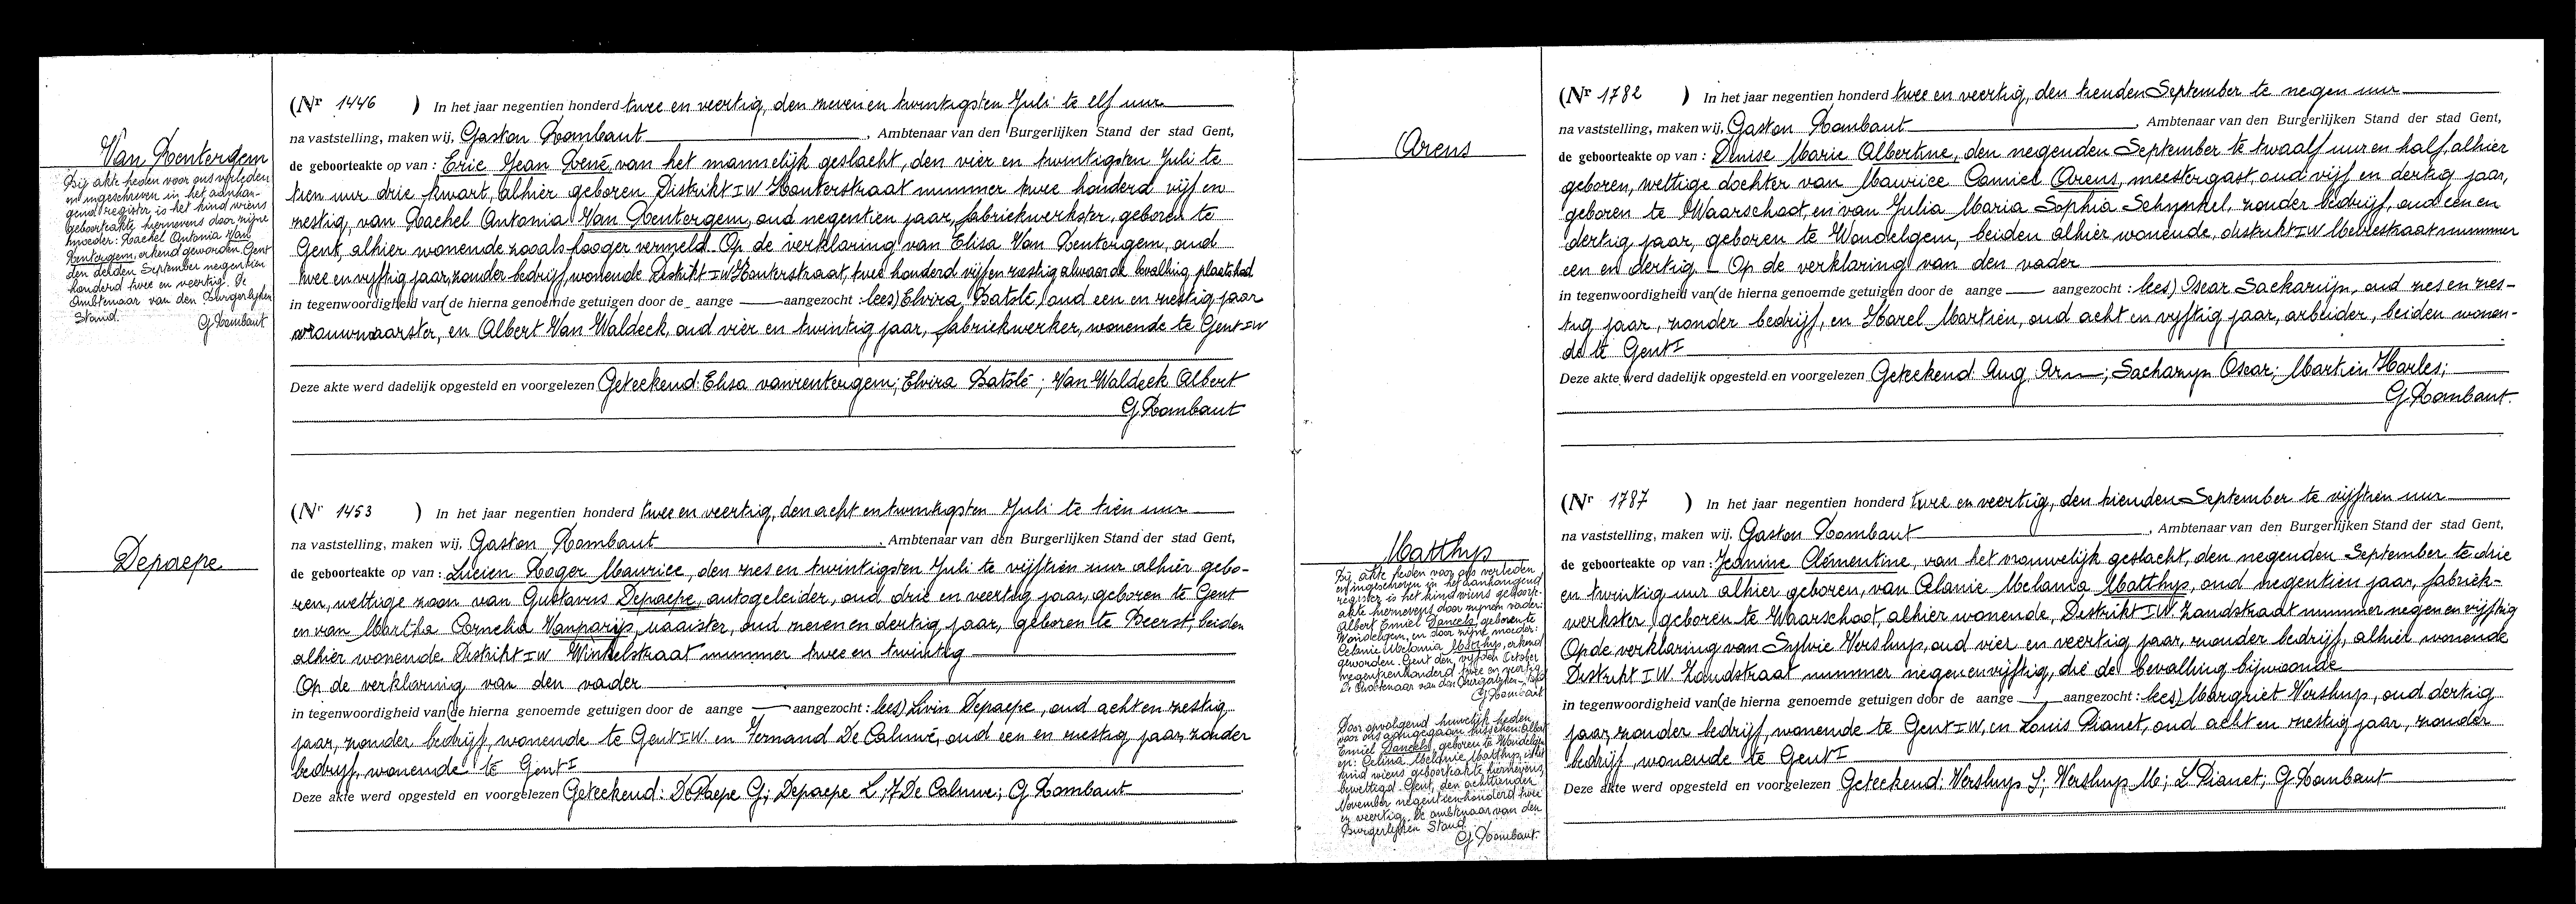 Van Rentergem
Bij akte heden voor ons verleden
en ingeschreven in het aanhan-
gend register, is het kind wiens
geboorteakte hiernevens door zijne
moeder: Rachel Antonia Van
Rentergem, erkend geworden. Gent
den derden September negentien
honderd twee en veertig. De
Ambtenaar van den Burgerlijken
Stand.
G Rombaut
(Nr 1446 ) In het jaar negentien honderd twee en veertig, den zeven en twintigsten Juli te elf uur
na vaststelling, maken wij, Gaston Rombaut, Ambtenaar van den Burgerlijken Stand der stad Gent,
de geboorteakte op van : Eric Jean René, van het mannelijk geslacht, den vier en twintigsten Juli te
tien uur drie kwart, alhier geboren Distrikt IW Houterstraat nummer twee honderd vijf en
zestig, van Rachel Antonia Van Rentergem, oud negentien jaar, fabriekwerkster, geboren te
Gent, alhier wonende zooals hooger vermeld. Op de verklaring van Elisa Van Rentergem, oud
twee en vijftig jaar, zonder bedrijf, wonende Distrikt IW Houterstraat, twee honderd vijf en zestig alwaar de bevalling plaats had
in tegenwoordigheid van (de hierna genoemde getuigen door de aange — aangezocht : lees) Elvira Batslé, oud een en zestig jaar
vrouwvaarster, en Albert Van Waldeck, oud vier en twintig jaar, fabriekwerker, wonende te Gent IW
Deze akte werd dadelijk opgesteld en voorgelezen Geteekend: Elisa vanrentergem; Elvira Batslé; Van Waldeck Albert
G Rombaut
Depaepe
(Nr 1453 ) In het jaar negentien honderd twee en veertig, den acht en twintigsten Juli te tien uur
na vaststelling, maken wij, Gaston Rombaut, Ambtenaar van den Burgerlijken Stand der stad Gent,
de geboorteakte op van : Lucien Roger Maurice, den zes en twintigsten Juli te vijftien uur alhier gebo-
ren, wettige zoon van Gustavus Depaepe, autogeleider, oud drie en veertig jaar, geboren te Gent
en van Martha Cornelia Vanparijs, naaister, oud zeven en dertig jaar, geboren te Beerst, beiden
alhier wonende Distrikt IW Winkelstraat nummer twee en twintig
Op de verklaring van den vader
in tegenwoordigheid van (de hierna genoemde getuigen door de aange — aangezocht : lees) Livin Depaepe, oud acht en zestig
jaar, zonder bedrijf, wonende te Gent IW en Fernand De Caluwé, oud een en zestig jaar, zonder
bedrijf, wonende te Gent I
Deze akte werd opgesteld en voorgelezen Geteekend: De Paepe G; Depaepe L; F De Caluwe; G Rombaut
Arens
(Nr 1782 ) In het jaar negentien honderd twee en veertig, den tienden September te negen uur
na vaststelling, maken wij, Gaston Rombaut, Ambtenaar van den Burgerlijken Stand der stad Gent,
de geboorteakte op van : Denise Marie Albertine, den negenden September te twaalf uur en half, alhier
geboren, wettige dochter van Maurice Camiel Arens, meestergast, oud vijf en dertig jaar,
geboren te Waarschoot, en van Julia Maria Sophia Schynkel, zonder bedrijf, oud een en
dertig jaar, geboren te Wondelgem, beiden alhier wonende, distrikt IW Meirestraat nummer
een en dertig. — Op de verklaring van den vader
in tegenwoordigheid van (de hierna genoemde getuigen door de aange — aangezocht : lees) Oscar Sackarijn, oud zes en zes-
tig jaar, zonder bedrijf, en Karel Martien, oud acht en vijftig jaar, arbeider, beiden wonen-
de te Gent I
Deze akte werd dadelijk opgesteld en voorgelezen Geteekend: Aug. ; Sacharyn Oscar; Martien Karles;
G Rombaut.
Matthys
Bij akte heden voor ons verleden
en ingeschreven in het aanhangend
register is het kind wiens geboorte-
akte hiernevens door zijnen vader:
Albert Emiel Danckls, geboren te
Wondelgem, en door zijne moeder:
Celanie Melania Matthys, erkend
geworden. Gent den vijfden October
negentienhonderd twee en veertig.
De Ambtenaar van den Burgerlijken Stand
G Rombaut
Door opvolgend huwelijk heden
voor ons aangegaan tusschen: Albert
Emiel Danckls, geboren te Wondelgem
en: Celina Melanie Matthys, is het
kind wiens geboorteakte hiernevens,
bewettigd. Gent, den achttienden
November negentienhonderd twee
en veertig. De ambtenaar van den
Burgerlijken Stand
G Rombaut.
(Nr 1787 ) In het jaar negentien honderd twee en veertig, den tienden September te vijftien uur
na vaststelling, maken wij, Gaston Rombaut, Ambtenaar van den Burgerlijken Stand der stad Gent,
de geboorteakte op van : Jeannine Clémentine, van het vrouwelijk geslacht, den negenden September te drie
en twintig uur alhier geboren, van Celanie Melania Matthys, oud negentien jaar, fabriek-
werkster, geboren te Waarschoot, alhier wonende, Distrikt IW. Zandstraat nummer negen en vijftig
Op de verklaring van Sylvie Versluys, oud vier en veertig jaar, zonder bedrijf, alhier wonende
Distrikt IW. Zandstraat nummer negen en vijftig, die de bevalling bijwoonde
in tegenwoordigheid van (de hierna genoemde getuigen door de aange — aangezocht : lees) Margriet Versluys, oud dertig
jaar, zonder bedrijf, wonende te Gent IW, en Louis Pianet, oud acht en zestig jaar, zonder
bedrijf, wonende te Gent I
Deze akte werd dadelijk opgesteld en voorgelezen Geteekend: Versluys S; Versluys M; L Pianet; G Rombaut